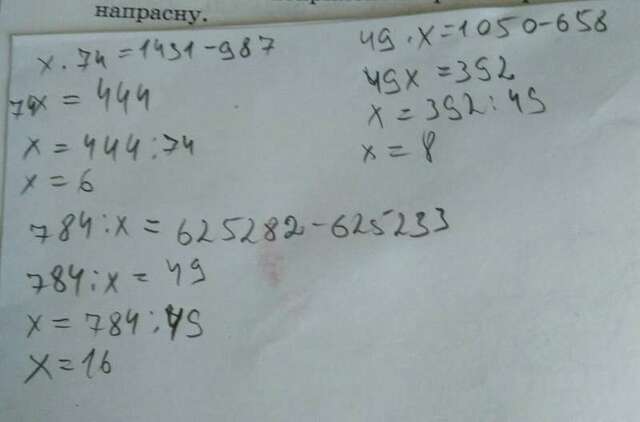 напрасну.
x · 74 = 1431 - 987
74x = 444
x = 444 : 74
x = 6
49 · x = 1050 - 658
49x = 392
x = 392 : 49
x = 8
784 : x = 625282 - 625233
784 : x = 49
x = 784 : 49
x = 16